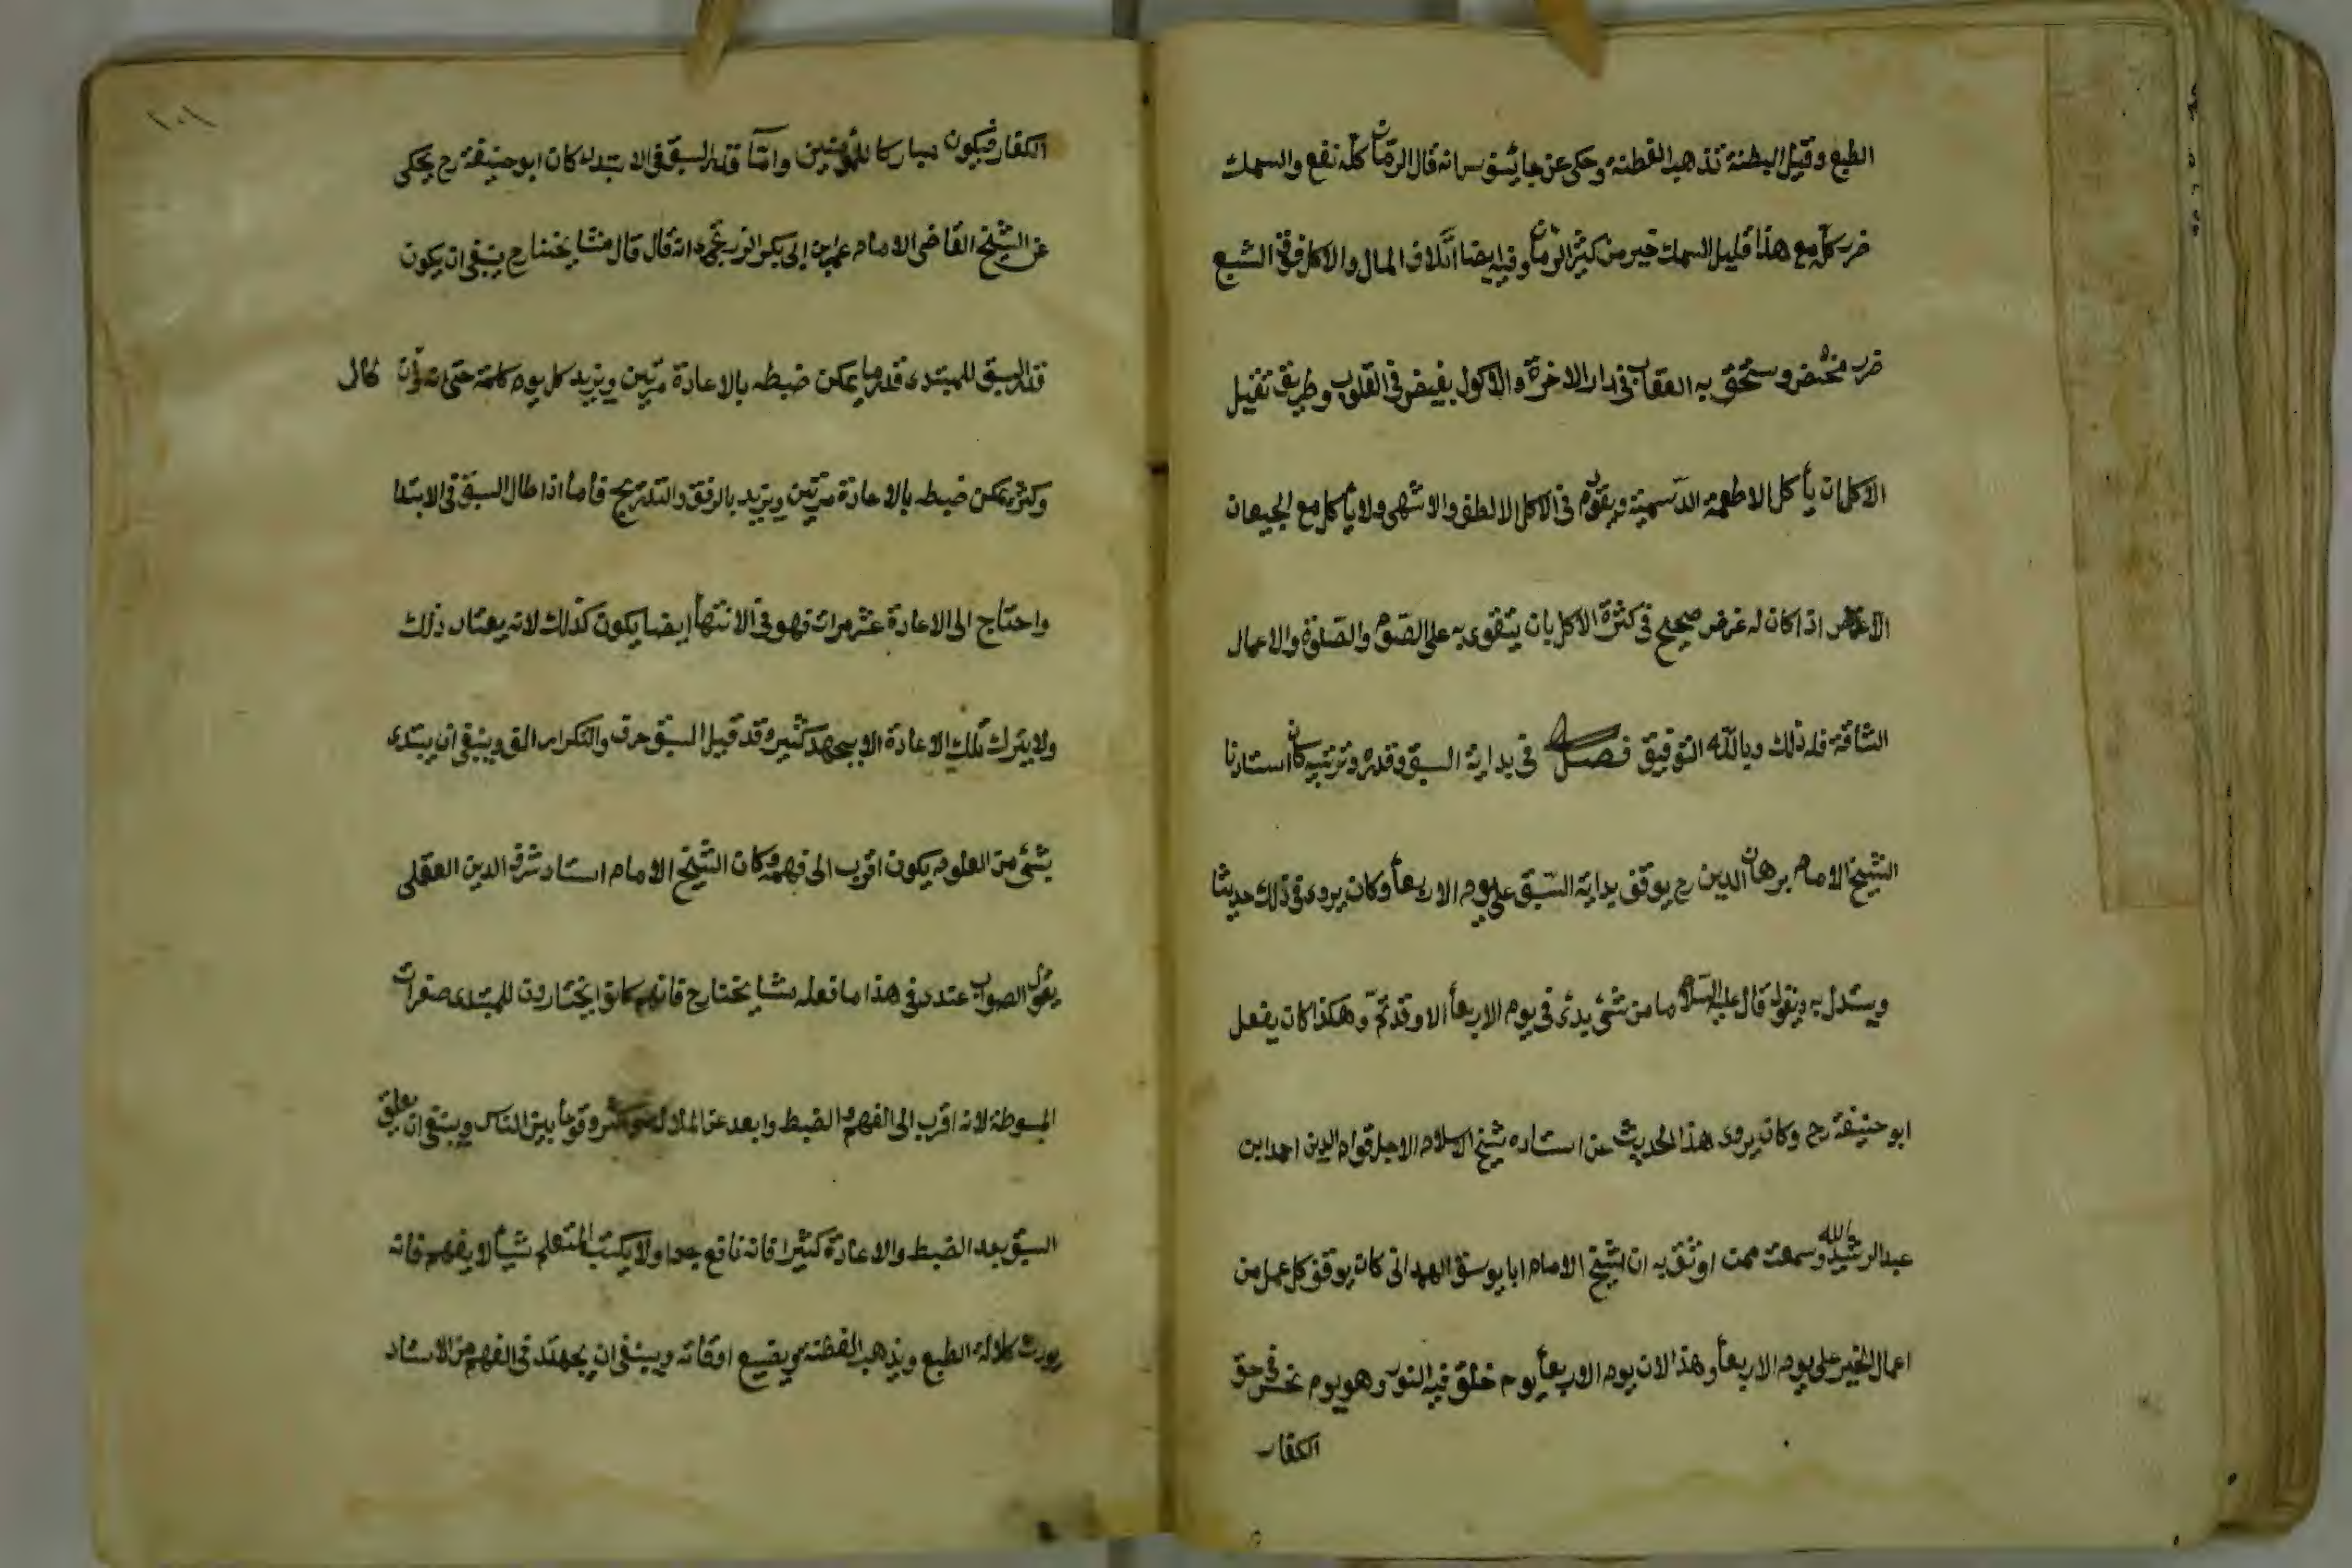 الطبع وقيل البطنة تذهب الفطنة وحكى عن جالينوس انه قال الرمان كله نفع والسمك
ضرر كله مع هذا قليل السمك خير من كثير الرمان وفيه ايضا اتلاف المال والاكل فوق الشبع
ضرر محض ويستحق به العقاب فى دار الاخرة والاكول بغيض فى القلوب وطريق تقليل
الاكل ان يأكل الاطعمة الدسمية ويقدم فى الاكل الالطف والاشهى ولا يأكل مع الجيعان
الا اذا كان له غرض صحيح فى كثرة الاكل بان يتقوى به على الصوم والصلوة والاعمال
الشاقة فله ذلك وبالله التوفيق فصل فى بداية السبق وقدره وترتيبه كان استادنا
الشيخ الامام برهان الدين رح يوقف بداية السبق على يوم الاربعأ وكان يروى فى ذلك حديثا
ويستدل به ويقول قال عليه السلام ما من شئ بدئ فى يوم الاربعأ الا وقد تم وهكذا كان يفعل
ابو حنيفة رح وكان يروى هذا الحديث عن استاده شيخ الاسلام الاجل قوام الدين احمد ابن
عبد الرشيد رحمه الله وسمعت ممن اوثق به ان الشيخ الامام ابا يوسف الهمدانى كان يوقف كل عمل من
اعمال الخير على يوم الاربعأ وهذا لان يوم الاربعأ يوم خلق فيه النور وهو يوم نحس فى حق
الكفار
١٠١
الكفار فيكون مباركا للمؤمنين واما قدر السبق فى الابتداء كان ابو حنيفة رح يحكى
عن الشيخ القاضى الامام عمر بن ابى بكر الزرنجى انه قال قال مشايخنا رح ينبغى ان يكون
قدر السبق للمبتدى قدر ما يمكن ضبطه بالاعادة مرتين ويزيد كل يوم كلمة حتى انه وان طال
وكثر يمكن ضبطه بالاعادة مرتين ويزيد بالرفق والتدريج فأما اذا طال السبق فى الابتدا
واحتاج الى الاعادة عشر مرات فهو فى الانتهأ ايضا يكون كذلك لانه يعتاد ذلك
ولا يترك تلك الاعادة الا بجهد كثير وقد قيل السبق حرف والتكرار الف وينبغى ان يبتدى
بشئ من العلوم يكون اقرب الى فهمه وكان الشيخ الامام استاد شرف الدين العقلى
يقول الصواب عندى فى هذا ما فعله مشايخنا رح فانهم كانوا يختارون للمبتدى صغرات
المبسوطة لانه اقرب الى الفهم والضبط وابعد عن الملالة وكثر وقوعا بين الناس وينبغى ان يعلق
السبق بعد الضبط والاعادة كثيرا فانه نافع جدا ولا يكتب المتعلم شيأ لا يفهم فانه
يورث كلالة الطبع ويذهب الفطنة ويضيع اوقاته وينبغى ان يجهتد فى الفهم من الاستاد